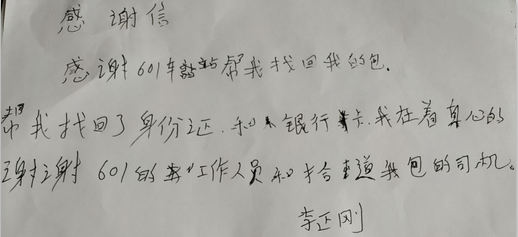 感谢信
感谢601车站帮我找回我的包.
帮我找回了身份证.和银行卡.我在着真心的
谢谢601的工作人员和拾道我包的司机。
李正刚